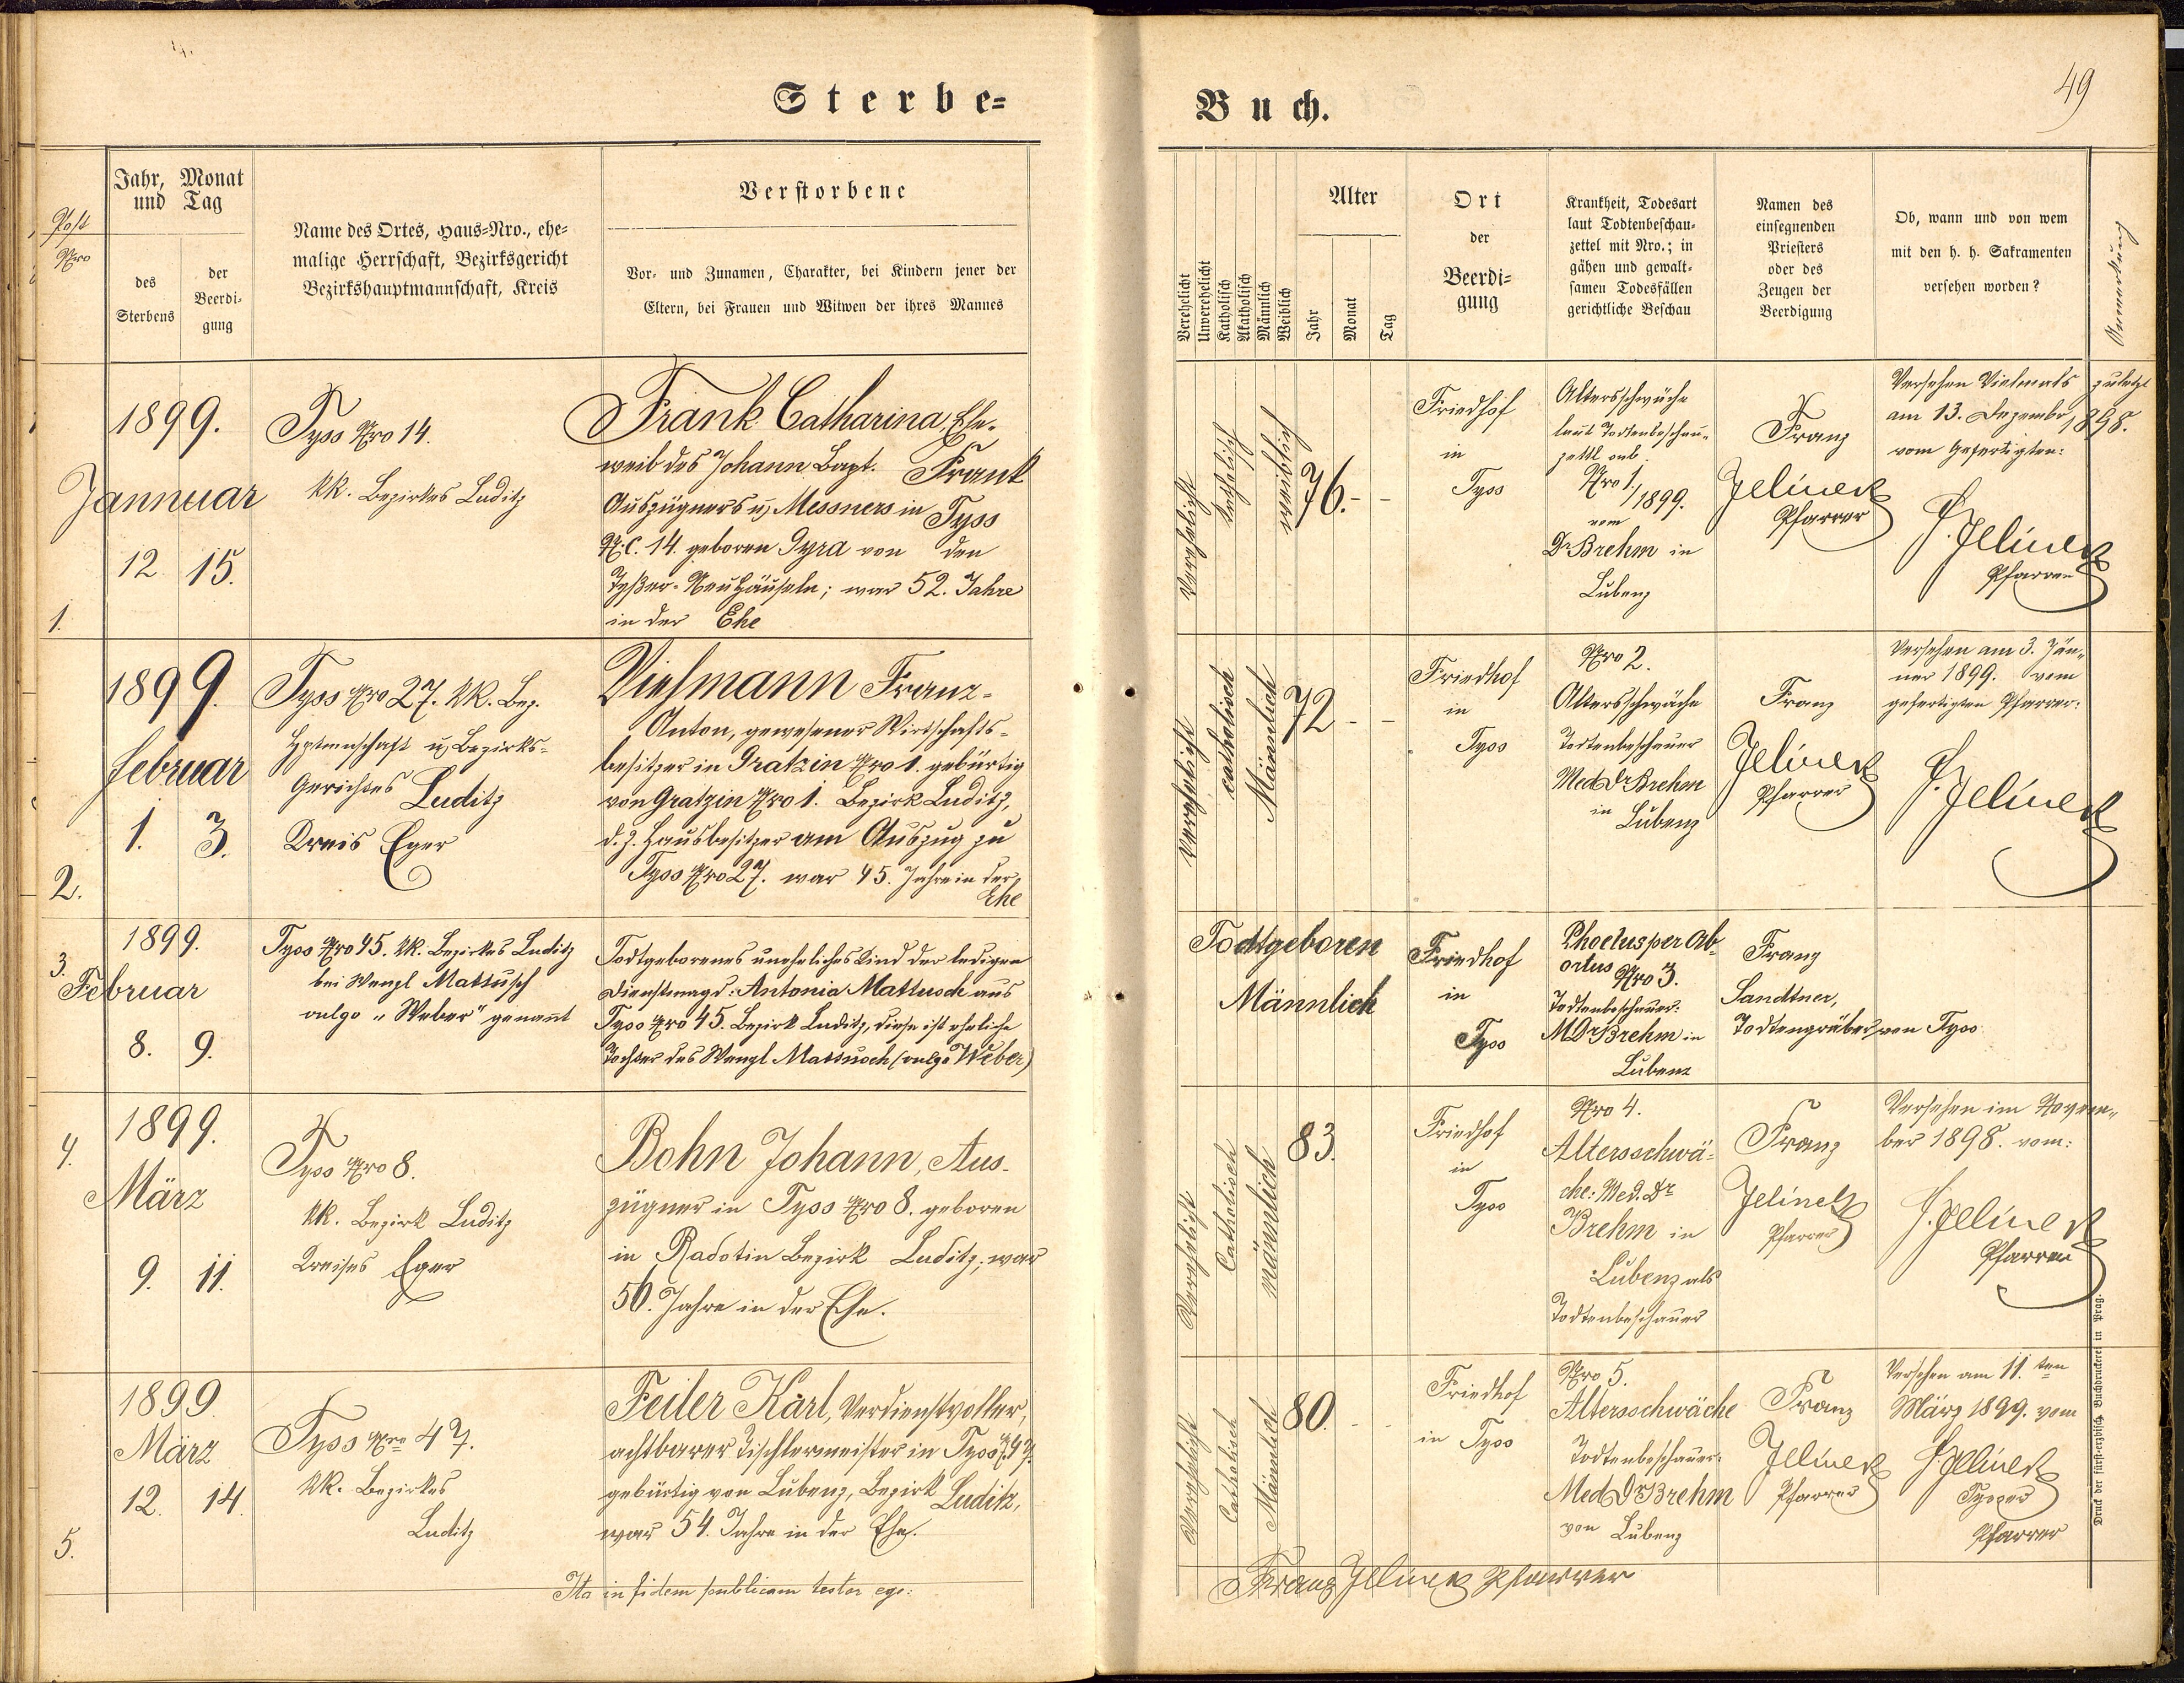 Sterbe-
Buch.
49
Post
Nro
Jahr, Monat
und Tag
des
Sterbens
der
Beerdi-
gung
Name des Ortes, Haus-Nro., ehe-
malige Herrschaft, Bezirksgericht
Bezirkshauptmannschaft, Kreis
Verstorbene
Vor- und Zunamen, Charakter, bei Kindern jener der
Eltern, bei Frauen und Witwen der ihres Mannes
Verehelicht
Unverehelicht
Katholisch
Akatholisch
Männlich
Weiblich
Alter
Jahr
Monat
Tag
Ort
der
Beerdi-
gung
Krankheit, Todesart
laut Todtenbeschau-
zettel mit Nro.; in
gähen und gewalt-
samen Todesfällen
gerichtliche Beschau
Namen des
einsegnenden
Priesters
oder des
Zeugen der
Beerdigung
Ob, wann und von wem
mit den h. h. Sakramenten
versehen worden?
Anmerkung
1.
1899.
Jannuar
12 15.
Tyss Nro 14.
kk. Bezirkes Luditz
Frank Catharina, Ehe-
weib des Johann Bapt. Frank
Auszügners u. Messners in Tyss
N.C. 14. geboren Gyra von den
Tyßer-Neuhäuseln; war 52. Jahre
in der Ehe
Verehelicht
katholisch
weiblich
76. - -
Friedhof
in
Tyss
Altersschwäche
laut Todtenbeschau-
zettl sub
Nro 1/1899.
vom
Dr Brehm in
Lubenz
Franz
Jelinek
Pfarrer
Versehen Vielmals zuletzt
am 13. Dezember 1898.
vom Gefertigten:
F. Jelinek
Pfarrer
2.
1899.
februar
1. 3.
Tyss Nro 27. kk. Bez.
Hptmnschaft u. Bezirks-
Gerichtes Luditz
Kreis Eger
Viehmann Franz-
Anton, gewesener Wirtschafts-
besitzer in Gratzin Nro 1. gebürtig
von Gratzin Nro 1. Bezirk Luditz,
d. z. Hausbesitzer am Auszug zu
Tyss Nro 27. war 45. Jahre in der
Ehe
Verehelicht
catholisch
Männlich
72 - -
Friedhof
in
Tyss
Nro 2.
Altersschwäche
Todtenbeschauer
Med Dr Brehm
in Lubenz
Franz
Jelinek
Pfarrer
Versehen am 3. Jän-
ner 1899. vom
gefertigten Pfarrer:
F. Jelinek
3.
1899.
Februar
8. 9.
Tyss Nro 45. kk. Bezirkes Luditz
bei Wenzl Mattusch
vulgo "Weber" genannt
Todtgeborenes uneheliches Kind der ledigen
Dienstmagd: Antonia Mattusch aus
Tyss Nro 45. Bezirk Luditz, diese ist eheliche
Tochter des Wenzl Mattusch (vulgo Weber)
Todtgeboren
Männlich
Friedhof
in
Tyss
Phoetus per Ab-
ortus Nro 3.
Todtenbeschauer:
M Dr Brehm in
Lubenz
Franz
Sandtner,
Todtengräber von Tyss
4.
1899.
März
9. 11.
Tyss Nro 8.
kk. Bezirk Luditz
Kreises Eger
Bohn Johann, Aus-
zügner in Tyss Nro 8. geboren
in Radotin Bezirk Luditz; war
50. Jahre in der Ehe.
Verehelicht
Catholisch
männlich
83.
Friedhof
in
Tyss
Nro 4.
Altersschwä-
che: Med. Dr
Brehm in
Lubenz als
Todtenbeschauer
Franz
Jelinek
Pfarrer
Versehen im Novem-
ber 1898. vom:
F. Jelinek
Pfarrer
5.
1899
März
12. 14.
Tyss Nro 47.
kk. Bezirkes
Luditz
Feiler Karl, Verdienstvoller,
achtbarer Tischlermeister in Tyss N. 47.
gebürtig von Lubenz, Bezirk Luditz,
war 54. Jahre in der Ehe.
Verehelicht
Catholisch
Männlich
80. - -
Friedhof
in Tyss
Nro 5.
Altersschwäche
Todtenbeschauer:
Med Dr Brehm
von Lubenz
Franz
Jelinek
Pfarrer
Versehen am 11.ten
März 1899. vom
F. Jelinek
Tysser
Pfarrer
Ita in fidem publicam testor ego:
Franz Jelinek Pfarrer
Druck der fürst-erzbisch. Buchdruckerei in Prag.